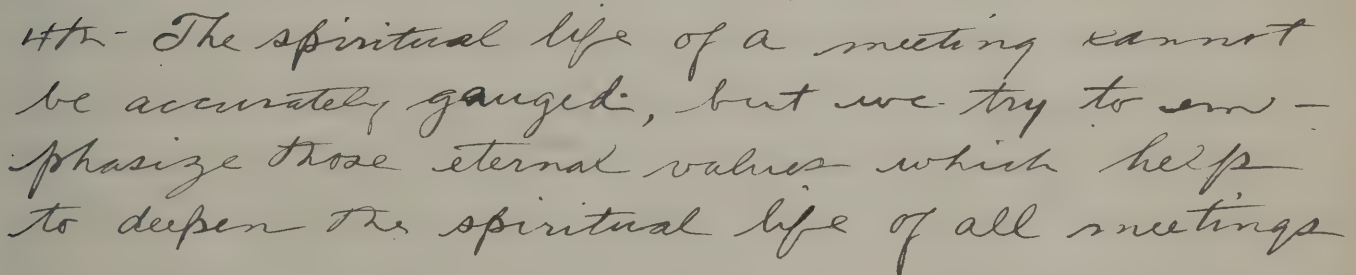 4th- The spiritual life of a meeting cannot
be accurately gauged, but we try to em-
phasize those eternal values which help
to deepen the spiritual life of all meetings